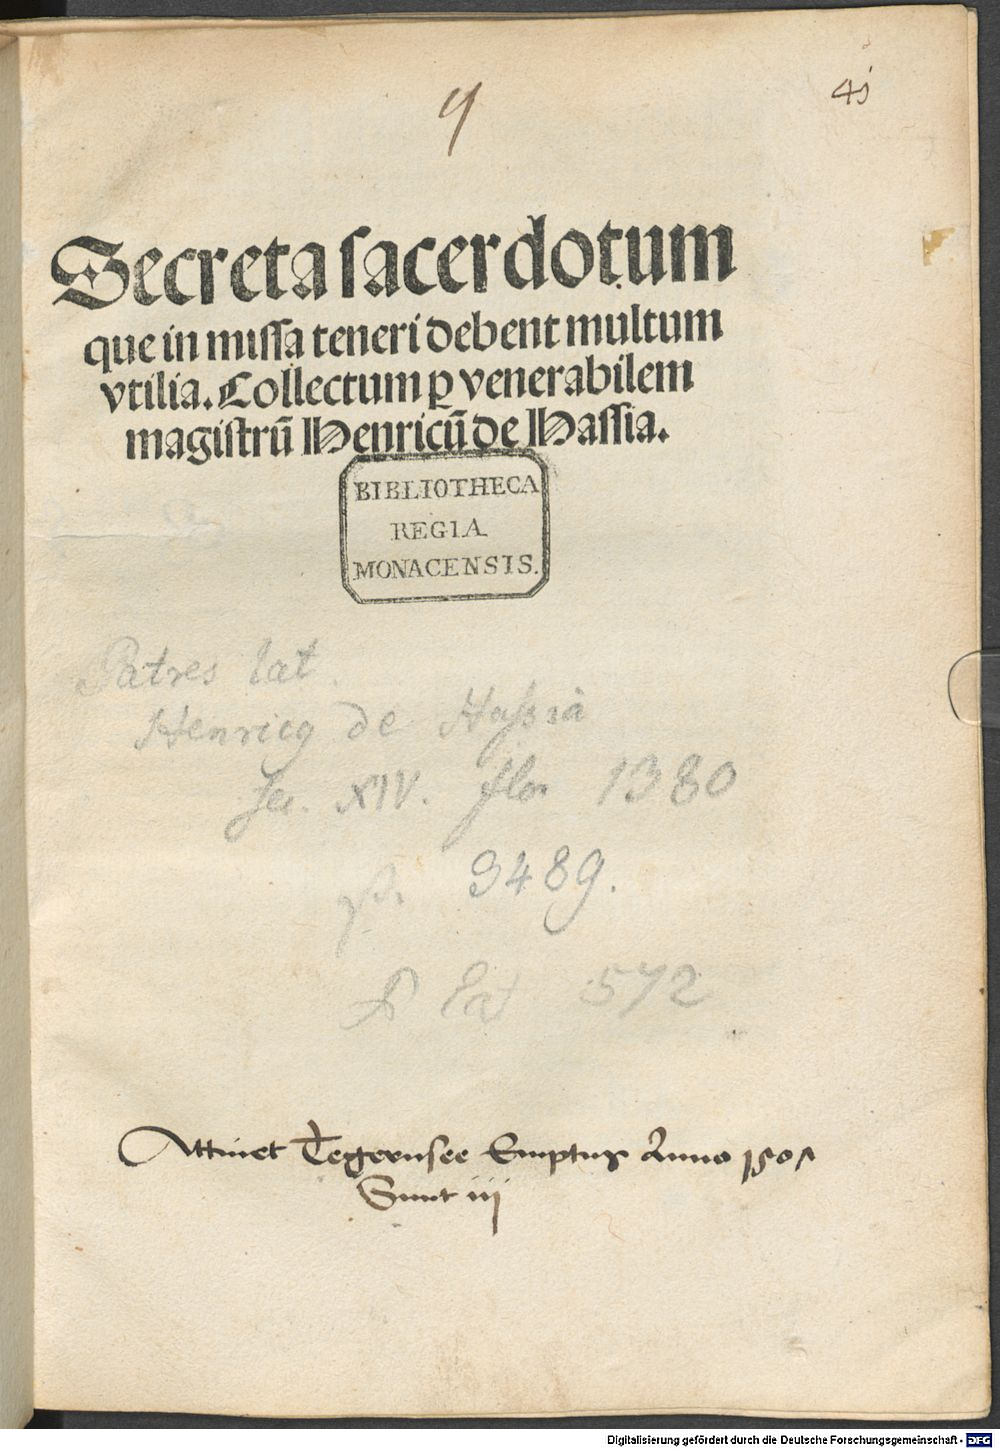 4j
Secreta sacerdotum
que in missa teneri debent multum
vtilia. Collectum p̱ venerabilem
magistrū Henricū de Hassia.
BIBLIOTHECA
REGIA
MONACENSIS.
Patres lat.
Henricq de Hassia
Sec. XIV. flor 1380
p. 3489.
P lat 572
Attinet Tegernsee Emptus Anno 1501
Sunt iij
Digitalisierung gefördert durch die Deutsche Forschungsgemeinschaft - DFG